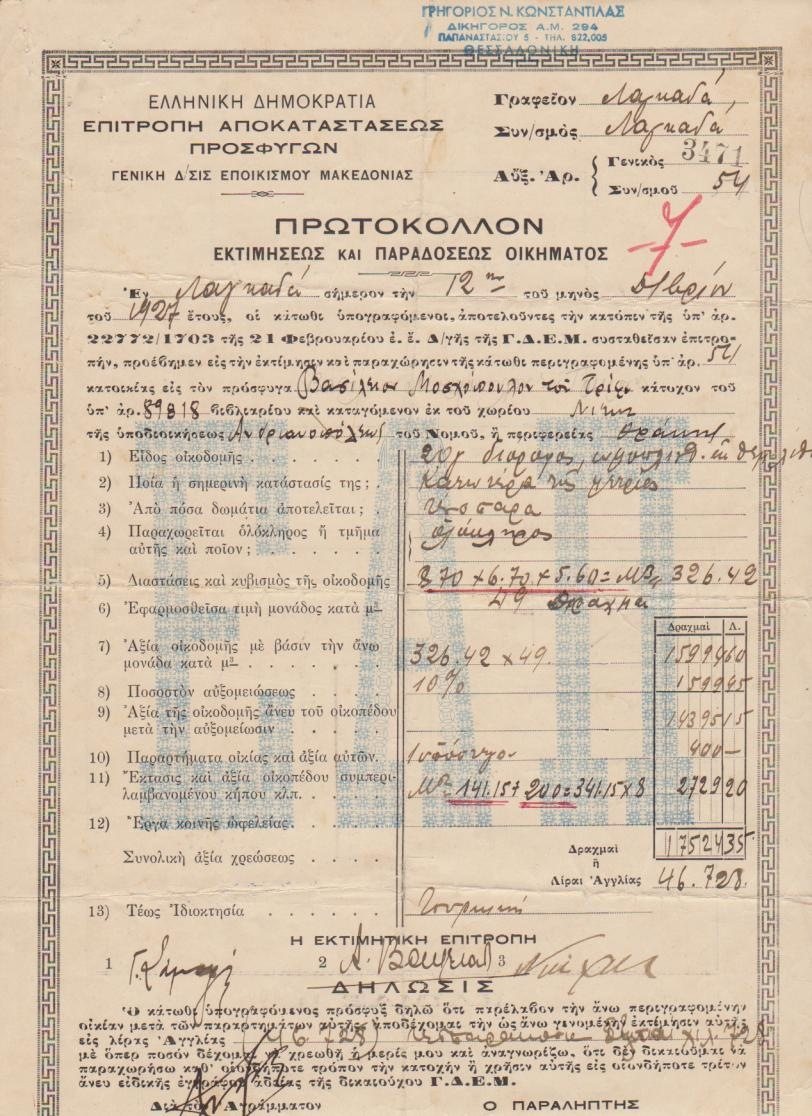 ΓΡΗΓΟΡΙΟΣ Ν. ΚΩΝΣΤΑΝΤΙΛΑΣ
ΔΙΚΗΓΟΡΟΣ Α.Μ. 294
ΠΑΠΑΝΑΣΤΑΣΙΟΥ 5 - ΤΗΛ. 822,005
ΘΕΣΣΑΛΟΝΙΚΗ
ΕΛΛΗΝΙΚΗ ΔΗΜΟΚΡΑΤΙΑ
ΕΠΙΤΡΟΠΗ ΑΠΟΚΑΤΑΣΤΑΣΕΩΣ
ΠΡΟΣΦΥΓΩΝ
ΓΕΝΙΚΗ Δ/ΣΙΣ ΕΠΟΙΚΙΣΜΟΥ ΜΑΚΕΔΟΝΙΑΣ
Γραφεῖον Λαγκαδᾶ
Συν/σμὸς Λαγκαδᾶ
Αὔξ. Ἀρ. { Γενικὸς 3471
Συν/σμοῦ 54
ΠΡΩΤΟΚΟΛΛΟΝ
-7-
ΕΚΤΙΜΗΣΕΩΣ ΚΑΙ ΠΑΡΑΔΟΣΕΩΣ ΟΙΚΗΜΑΤΟΣ
Ἐν Λαγκαδᾶ σήμερον τὴν 12 τοῦ μηνὸς
τοῦ 1927 ἔτους, οἱ κάτωθι ὑπογραφόμενοι, ἀποτελοῦντες τὴν κατόπιν τῆς ὑπ' ἀρ.
22772/1703 τῆς 21 Φεβρουαρίου ἐ. ἔ. Δ/γῆς τῆς Γ.Δ.Ε.Μ. συσταθεῖσαν ἐπιτρο-
πήν, προέβημεν εἰς τὴν ἐκτίμησιν καὶ παραχώρησιν τῆς κάτωθι περιγραφομένης ὑπ' ἀρ. 54
κατοικίας εἰς τὸν πρόσφυγα Βασίλειον Μοσχόπουλον τοῦ κάτοχον τοῦ
ὑπ' ἀρ. 89818 βιβλιαρίου καὶ καταγόμενον ἐκ τοῦ χωρίου
τῆς ὑποδιοικήσεως Ἀνδριανουπόλεως τοῦ Νομοῦ, ἢ περιφερείας Θράκης
1) Εἶδος οἰκοδομῆς
2) Ποία ἡ σημερινὴ κατάστασίς της; Κατωτέρα τῆς μετρίας
3) Ἀπὸ πόσα δωμάτια ἀποτελεῖται; τέσσαρα
4) Παραχωρεῖται ὁλόκληρος ἢ τμῆμα ὁλόκληρος
αὐτῆς καὶ ποῖον;
5) Διαστάσεις καὶ κυβισμὸς τῆς οἰκοδομῆς 8,70 × 6.70 × 5.60 = Μ³ 326.42
6) Ἐφαρμοσθεῖσα τιμὴ μονάδος κατὰ μ³ 49 δραχμαί
Δραχμαὶ Λ.
7) Ἀξία οἰκοδομῆς μὲ βάσιν τὴν ἄνω
μονάδα κατὰ μ³ 326.42 × 49. 15994 60
8) Ποσοστὸν αὐξομειώσεως 10% 1599 45
9) Ἀξία τῆς οἰκοδομῆς ἄνευ τοῦ οἰκοπέδου
μετὰ τὴν αὐξομείωσιν 14395 15
10) Παραρτήματα οἰκίας καὶ ἀξία αὐτῶν. 400 —
11) Ἔκτασις καὶ ἀξία οἰκοπέδου συμπερι-
λαμβανομένου κήπου κλπ. Μ² 141.15 + 200 = 341.15 × 8 2729 20
12) Ἔργα κοινῆς ὠφελείας.
Συνολικὴ ἀξία χρεώσεως Δραχμαὶ 17524 35
ἢ
Λίραι Ἀγγλίας 46.728
13) Τέως Ἰδιοκτησία Τουρκική
Η ΕΚΤΙΜΗΤΙΚΗ ΕΠΙΤΡΟΠΗ
1 2 3
ΔΗΛΩΣΙΣ
Ὁ κάτωθι ὑπογραφόμενος πρόσφυξ δηλῶ ὅτι παρέλαβον τὴν ἄνω περιγραφομένην
οἰκίαν μετὰ τῶν παραρτημάτων αὐτῆς ἀποδέχομαι τὴν ὡς ἄνω γενομένην ἐκτίμησιν αὐτῆς
εἰς λίρας Ἀγγλίας (46.728)
μὲ ὅπερ ποσὸν δέχομαι νὰ χρεωθῇ ἡ μερίς μου καὶ ἀναγνωρίζω, ὅτι δὲν δικαιοῦμαι νὰ
παραχωρήσω καθ' οἱονδήποτε τρόπον τὴν κατοχὴν ἢ χρῆσιν αὐτῆς εἰς οἱονδήποτε τρίτον
ἄνευ εἰδικῆς ἐγγράφου ἀδείας τῆς δικαιούχου Γ.Δ.Ε.Μ.
Διὰ τὸν ἀγράμματον Ο ΠΑΡΑΛΗΠΤΗΣ